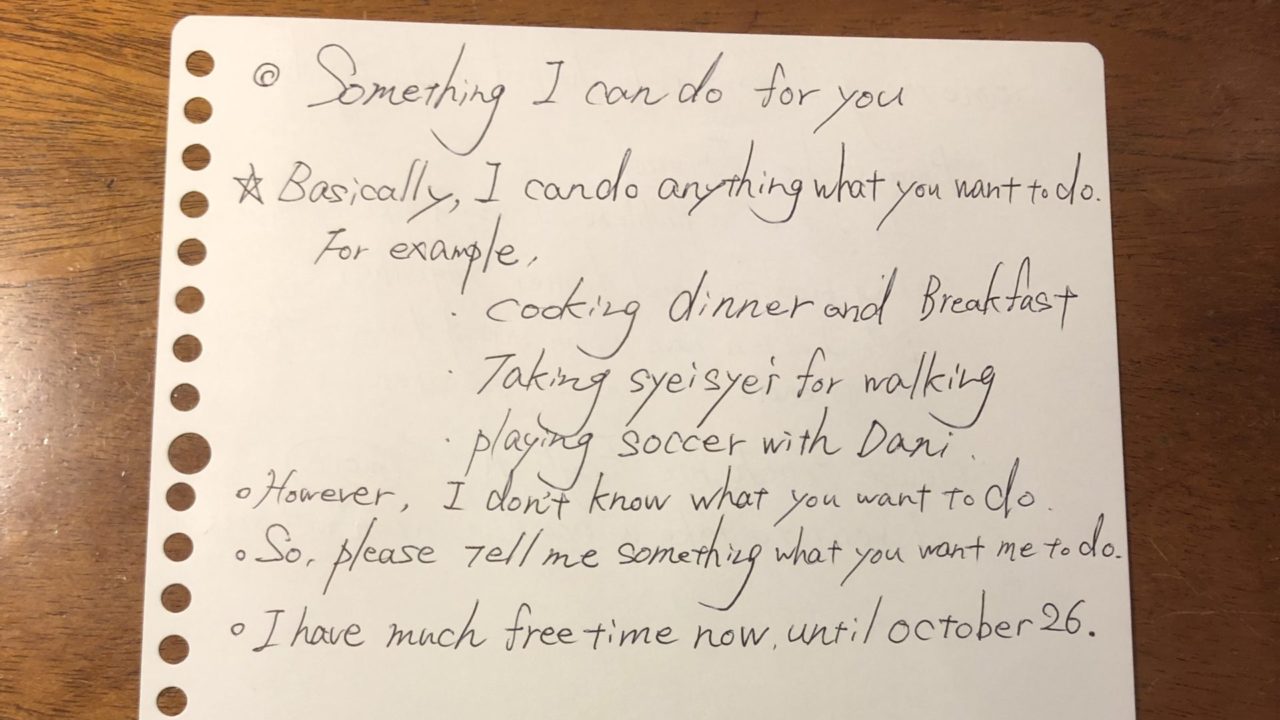 ◎ Something I can do for you
☆ Basically, I can do anything what you want to do.
For example,
· cooking dinner and Breakfast
· Taking syeisyei for walking
· playing soccer with Dani.
○ However, I don't know what you want to do.
○ So, please tell me something what you want me to do.
○ I have much free time now, until october 26.